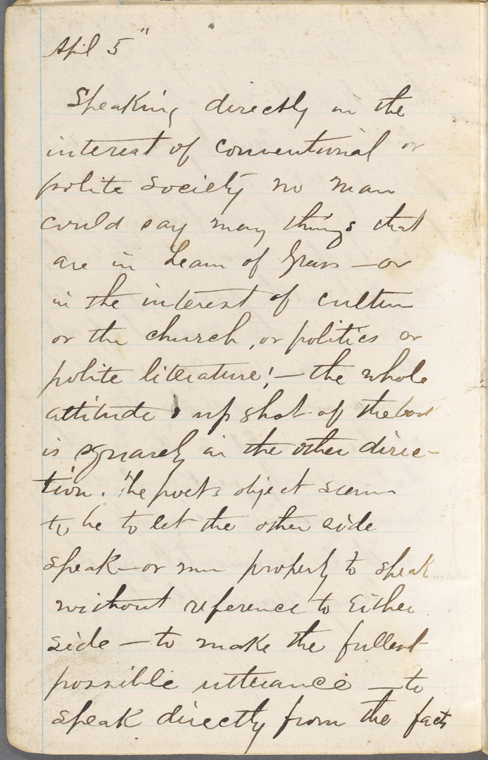 April 5"
Speaking directly in the
interest of conventional or
polite society no man
could say many things that
are in Leaves of Grass — or
in the interest of culture
or the church, or politics or
polite literature; — the whole
attitude & upshot of the book
is squarely in the other direc-
tion. The poet's object seems
to be to let the other side
speak — or more properly to speak
without reference to either
side — to make the fullest
possible utterance — to
speak directly from the facts